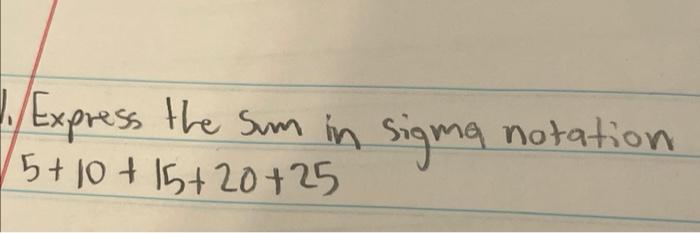 1. Express the sum in sigma notation
5+10+15+20+25